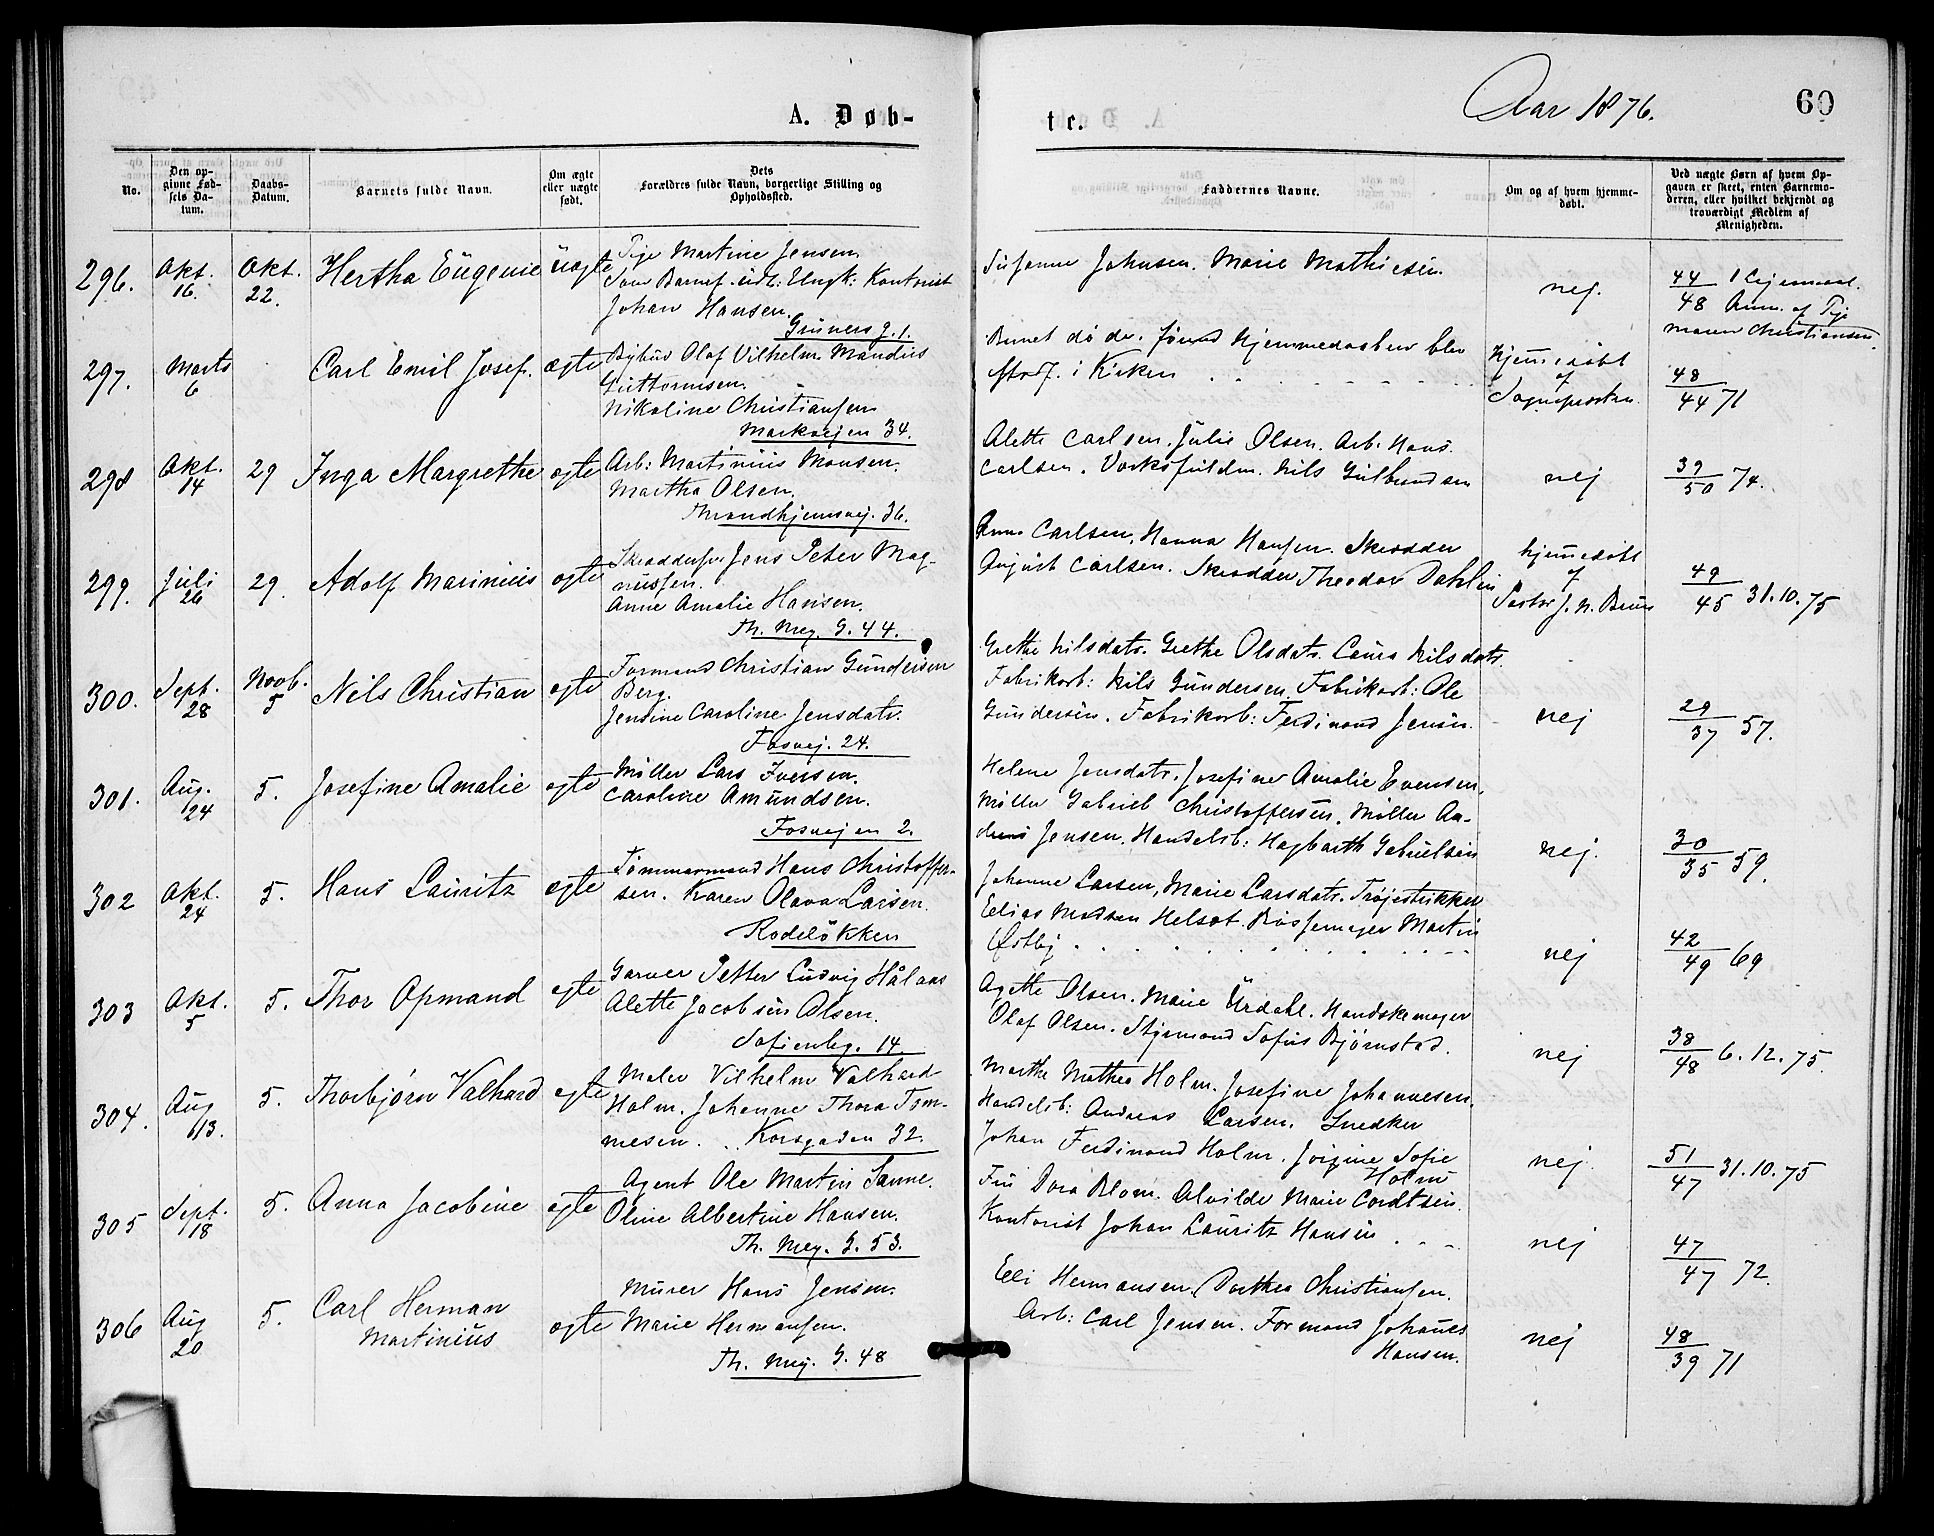 A. Døb-
No.
Den op-
givne Fød-
sels Da-
tum.
Daabs-
Datum.
Barnets fulde Navn.
Om ægte
eller uægte
født.
Dets
Forældres fulde Navn, borgerlige Stilling og
Opholdssted.
296. Okt. 16. Okt. 22. Hertha Eügenie üægte
Pige Martine Jensen.
Som Barnef. üdl: Üngk: Kontorist
Johan Hansen.
Grüners g. 1.
297. Marts 6 Carl Emil Josef. ægte
Bybüd Olaf Vilhelm Mandiüs
Güttormsen.
Nikoline Christiansen
Markvejen 34.
298 Okt. 14 29 Inga Margrethe ægte
Arb: Martiniüs Monsen.
Martha Olsen.
Throndhjemsvej. 36.
299. Jüli 26 29. Adolf Mariniüs ægte
Skræddersv. Jens Peter Mag-
nüssen.
Anne Amalie Hansen.
Th. Mey. G. 44.
300. Sept. 28 Novb. 5 Nils Christian ægte
Formand Christian Gündersen
Berg.
Jensine Caroline Jensdatr.
Fosvej. 24.
301. Aug. 24 5. Josefine Amalie ægte
Möller Lars Iversen.
Caroline Amündsen.
Fosvejen 2.
302 Okt. 24 5. Hans Laüritz ægte
Tømmermand Hans Christoffer-
sen. Karen Olava Larsen.
Rodeløkken
303 Okt. 5 5. Thor Opmand ægte
Garver Petter Lüdvig Hålaas
Alette Jacobsen Olsen.
Sofienbg. 14.
304. Aug 13. 5. Thorbjørn Valhard ægte
Maler Vilhelm Valhard
Holm. Johanne Thora Tøm-
mesen. Korsgaden 32.
305 Sept. 18 5. Anna Jacobine ægte
Agent Ole Martin Sanne.
Oline Albertine Hansen.
Th. Mey. G. 53.
306 Aug 20 5. Carl Herman
Martiniüs ægte
Mürer Hans Jensen.
Marie Hermansen.
Th. Mey. G. 48
te.
Aar 1876.
60
Faddernes Navne.
Om og af hvem hjemme-
døbt.
Ved uægte Børn af hvem Op-
gaven er skeet, enten Barnemo-
deren, eller hvilket bekjendt og
troværdigt Medlem af
Menigheden.
Süsanne Johnsen. Marie Mathiesen.
nej.
44/48 1 Lejermaal.
Anm. af Pige
Maren Christiansen.
Barnet døde, førend Hjemmedaaben blev
stadf. i Kirken
Hjemmedøbt
af
Sognepresten.
48/44 71
Alette Carlsen. Jülie Olsen. Arb. Hans
Carlsen. Værksfüldm. Nils Gülbrandsen
nej
39/50 74.
Anna Carlsen, Hanna Hansen. Skrædder
Aügüst Carlsen. Skrædder Theodor Dahlin
hjemmedøbt
af
Pastor J. N. Brün
49/45 31.10.75
Grethe Nilsdatr. Grethe Olsdatr. Laüra Nilsdatr.
Fabrikarb: Nils Gündersen. Fabrikarb: Ole
Gündersen. Fabrikarb: Ferdinand Jensen.
nej
29/37 57.
Helene Jensdatr. Josefine Amalie Evensen,
Möller Gabriel Christoffersen, Möller An-
dreas Jensen. Handelsb: Hagbarth Gabrielsen
nej.
30/35 59.
Johanne Larsen, Marie Larsdatr. Trøjestrikker
Elias Madsen Helset. Bøssemager Martin
Østby
nej
42/49 69
Agethe Olsen. Marie Ürdahl. Handskemager
Olaf Olsen. Styrmand Sofüs Bjørnstad.
nej
38/48 6.12.75.
Marthe Mathea Holm. Josefine Johannesen.
Handelsb: Andreas Larsen. Snedker
Johan Ferdinand Holm. Jørgine Sofie
Holm
nej.
51/47 31.10.75
Frü Dora Blom. Alvilde Marie Cordtsen.
Kontorist Johan Laüritz Hansen
nej
47/47 72.
Elli Hermansen. Dorthea Christiansen.
Arb: Carl Jensen. Formand Johanes
Hansen.
nej
48/39 71